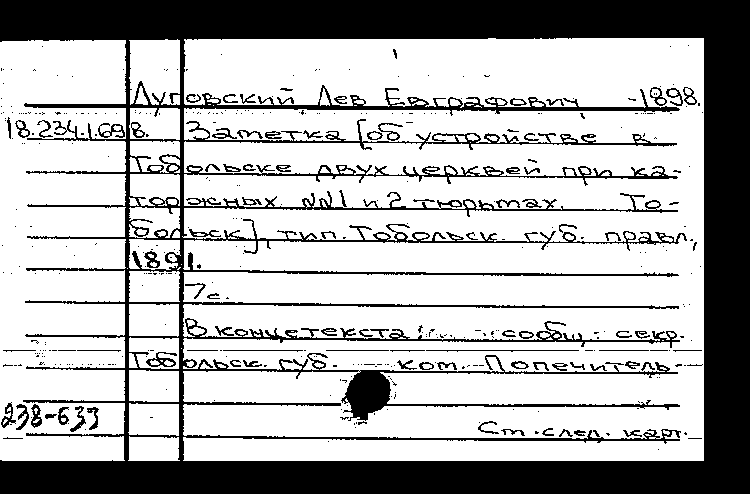 Луговский, Лев Евграфович, -1898.
18.234.1.698. Заметка [об устройстве в
Тобольске двух церквей при ка-
торожных NN1 и 2 тюрьмах. То-
больск], тип. Тобольск. губ. правл.,
1891.
7с.
В конце текста: сообщ. секр.
Тобольск. губ. ком. Попечитель-
238-633
См. след. карт.